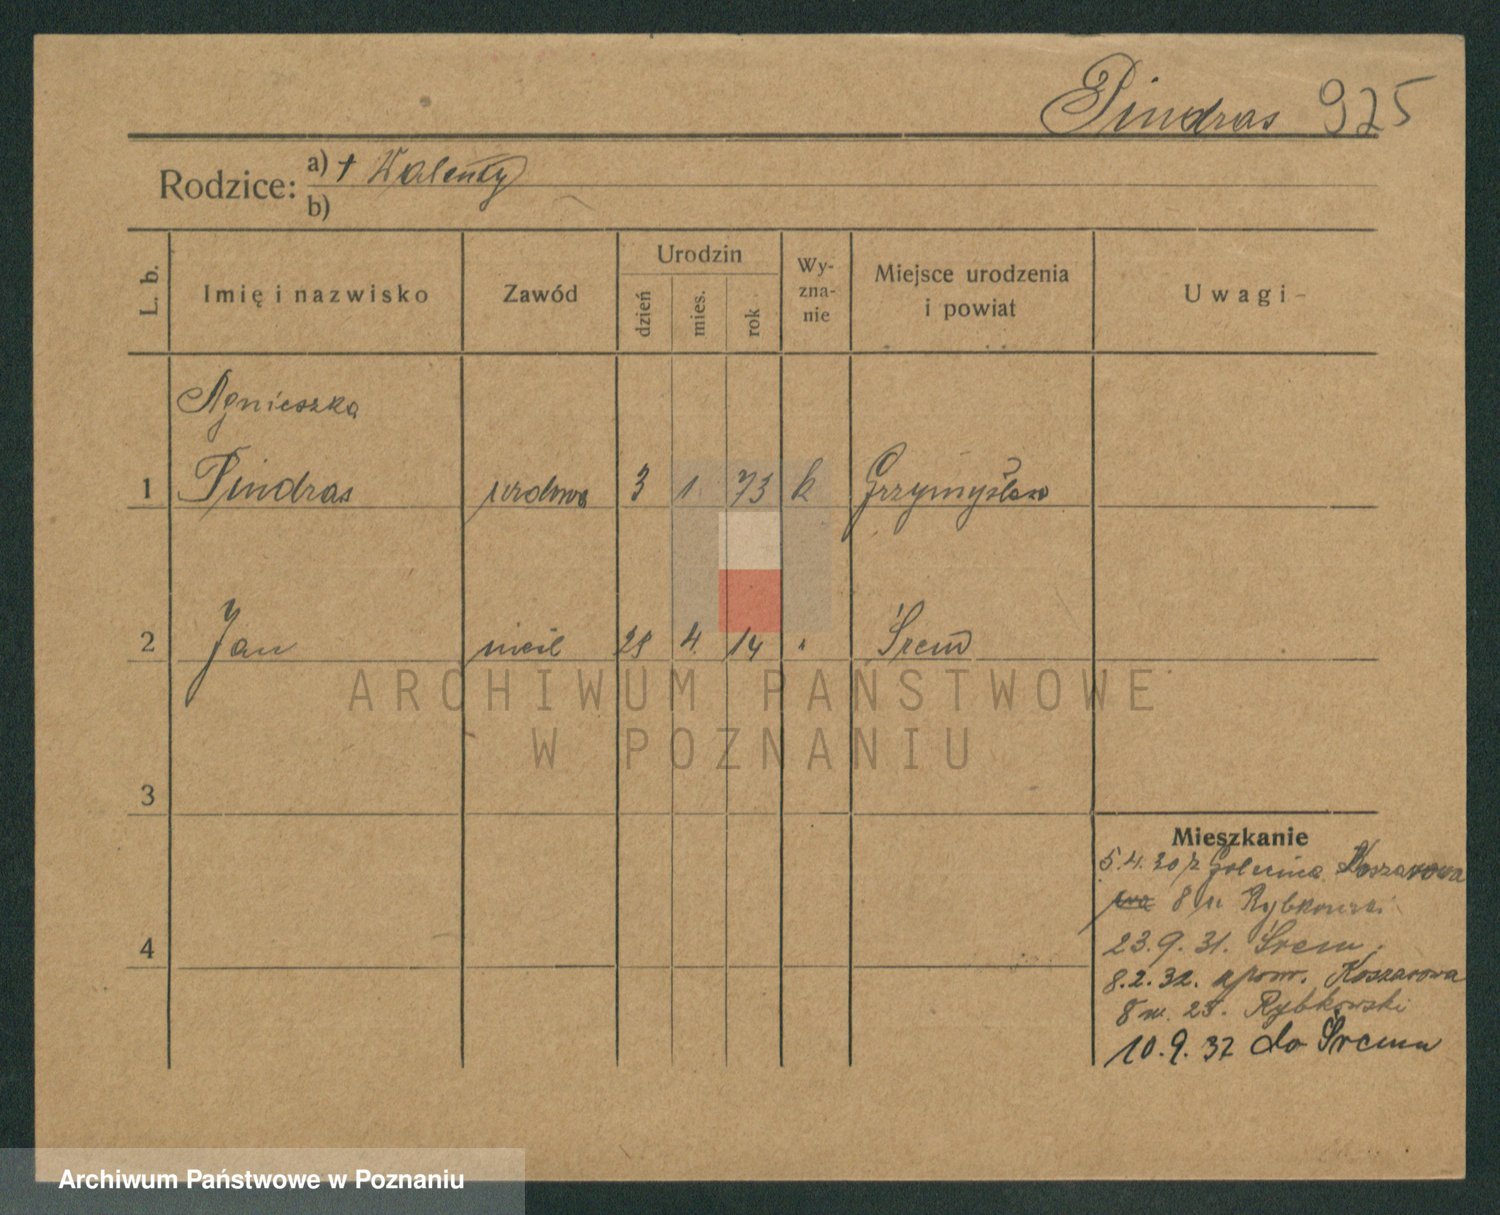 Pindras 925
Rodzice: a) + Walenty
b)
L. b. Imię i nazwisko Zawód Urodzin dzień mies. rok Wy-zna-nie Miejsce urodzenia i powiat Uwagi -
Agnieszka
1 Pindras wdowa 3 1. 73 k Grzymysław
2 Jan 4. 14 " Śrem
ARCHIWUM PAŃSTWOWE
W POZNANIU
3
4
Mieszkanie
5.4.30 z Koszarowa
8 Rybkowski
23.9.31. Śrem.
8.2.32. Koszarowa
8 m. 25. Rybkowski
10.9.32 do Śremu
Archiwum Państwowe w Poznaniu